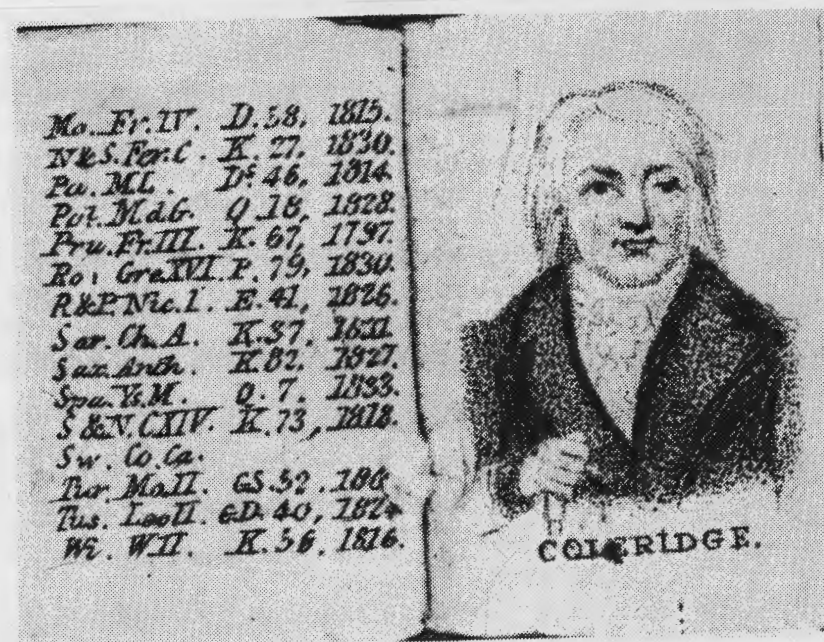 Mo. Fr. IV. D. 58, 1815.
N&S. Fer. C. K. 27, 1830.
Pa. M.L. Ds. 46, 1814.
Pot. M.d.G. Q. 18, 1828.
Pru. Fr. III. K. 67, 1797.
Ro. Gre. XVI. P. 79, 1830.
R&P. Nic. I. E. 41, 1826.
Sar. Ch. A. K. 37,
Sax. Anth. K. 82, 1827.
Spa. Ys. M. Q. 7. 1833.
S&N. CXIV. K. 73, 1818.
Sw. Co. Ca.
Tur. Mo. II. GS. 52,
Tus. Leo II. GD. 40,
Wi. W. II. K. 56, 1816.
COLERIDGE.